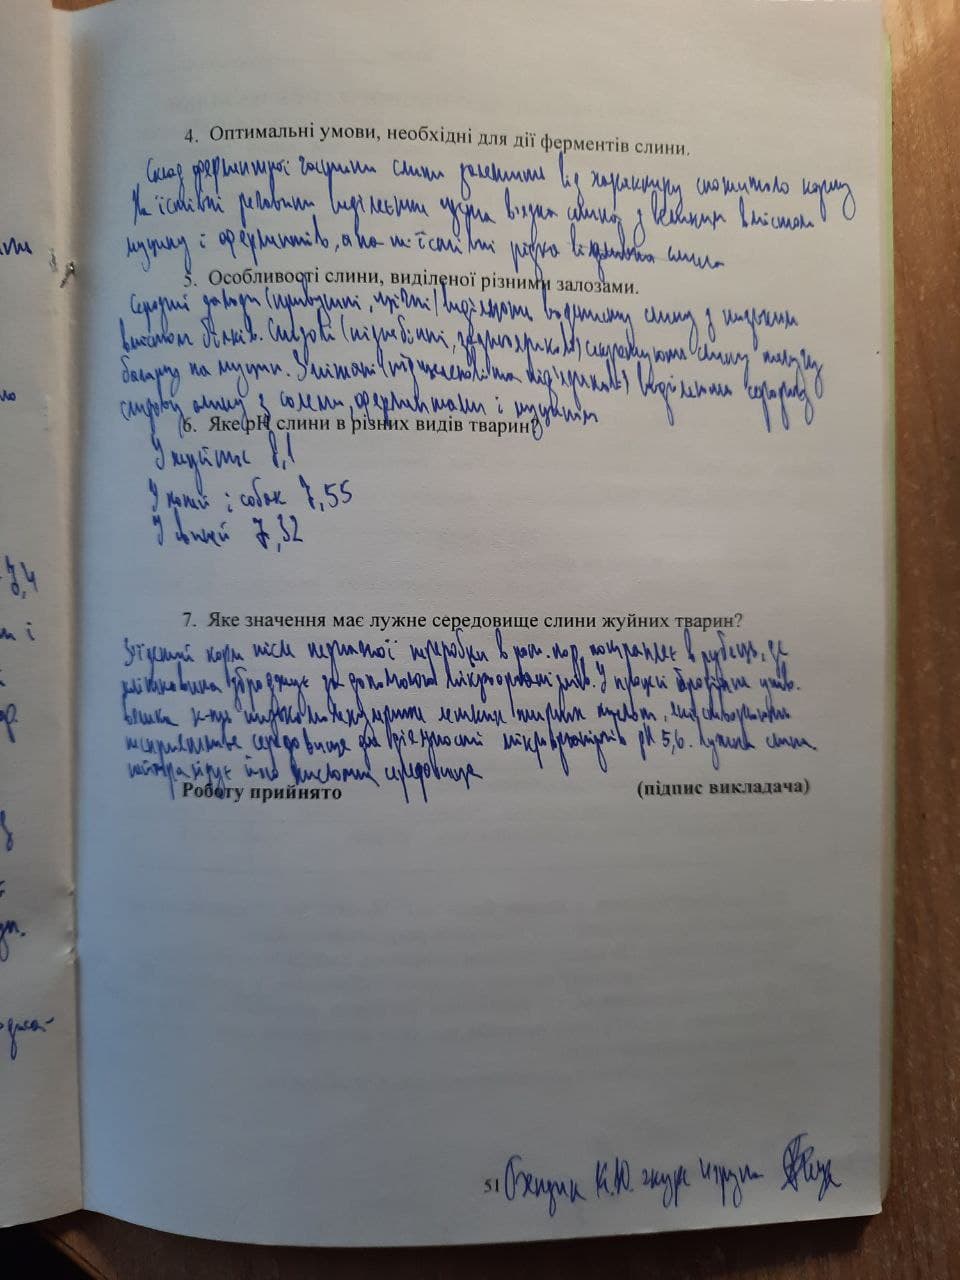 4. Оптимальні умови, необхідні для дії ферментів слини.
Склад ферментної частини слини залежить від характеру спожитого корму
На їстівні речовини виділяється густа в'язка слина з великим вмістом
муцину і ферментів, а на не їстівні рідка слина
5. Особливості слини, виділеної різними залозами.
Серозні залози (привушні, щічні) виділяють водянисту слину з низьким
вмістом білків. Слизові (піднебінні, ) слину
багату на муцин. Змішані (підщелепні та під'язикові) виділяють серозно
слизову слину з солями, ферментами і муцином
6. Яке pH слини в різних видів тварин?
У жуйних 8,1
У коней і собак 7,55
У свиней 7,32
7. Яке значення має лужне середовище слини жуйних тварин?
З'їдений корм після первинної переробки в рот. пор. потрапляє в рубець, де
клітковина зброджує за допомогою мікроорганізмів. У процесі бродіння утвор.
велика к-ть низькомолекулярних летких жирних кислот, які створюють
несприятливе середовище для діяльності мікроорганізмів pH 5,6. Лужна слина
нейтралізує його кислотне середовище
Роботу прийнято (підпис викладача)
51 К.Ю. 2 курс 4 група
3,4